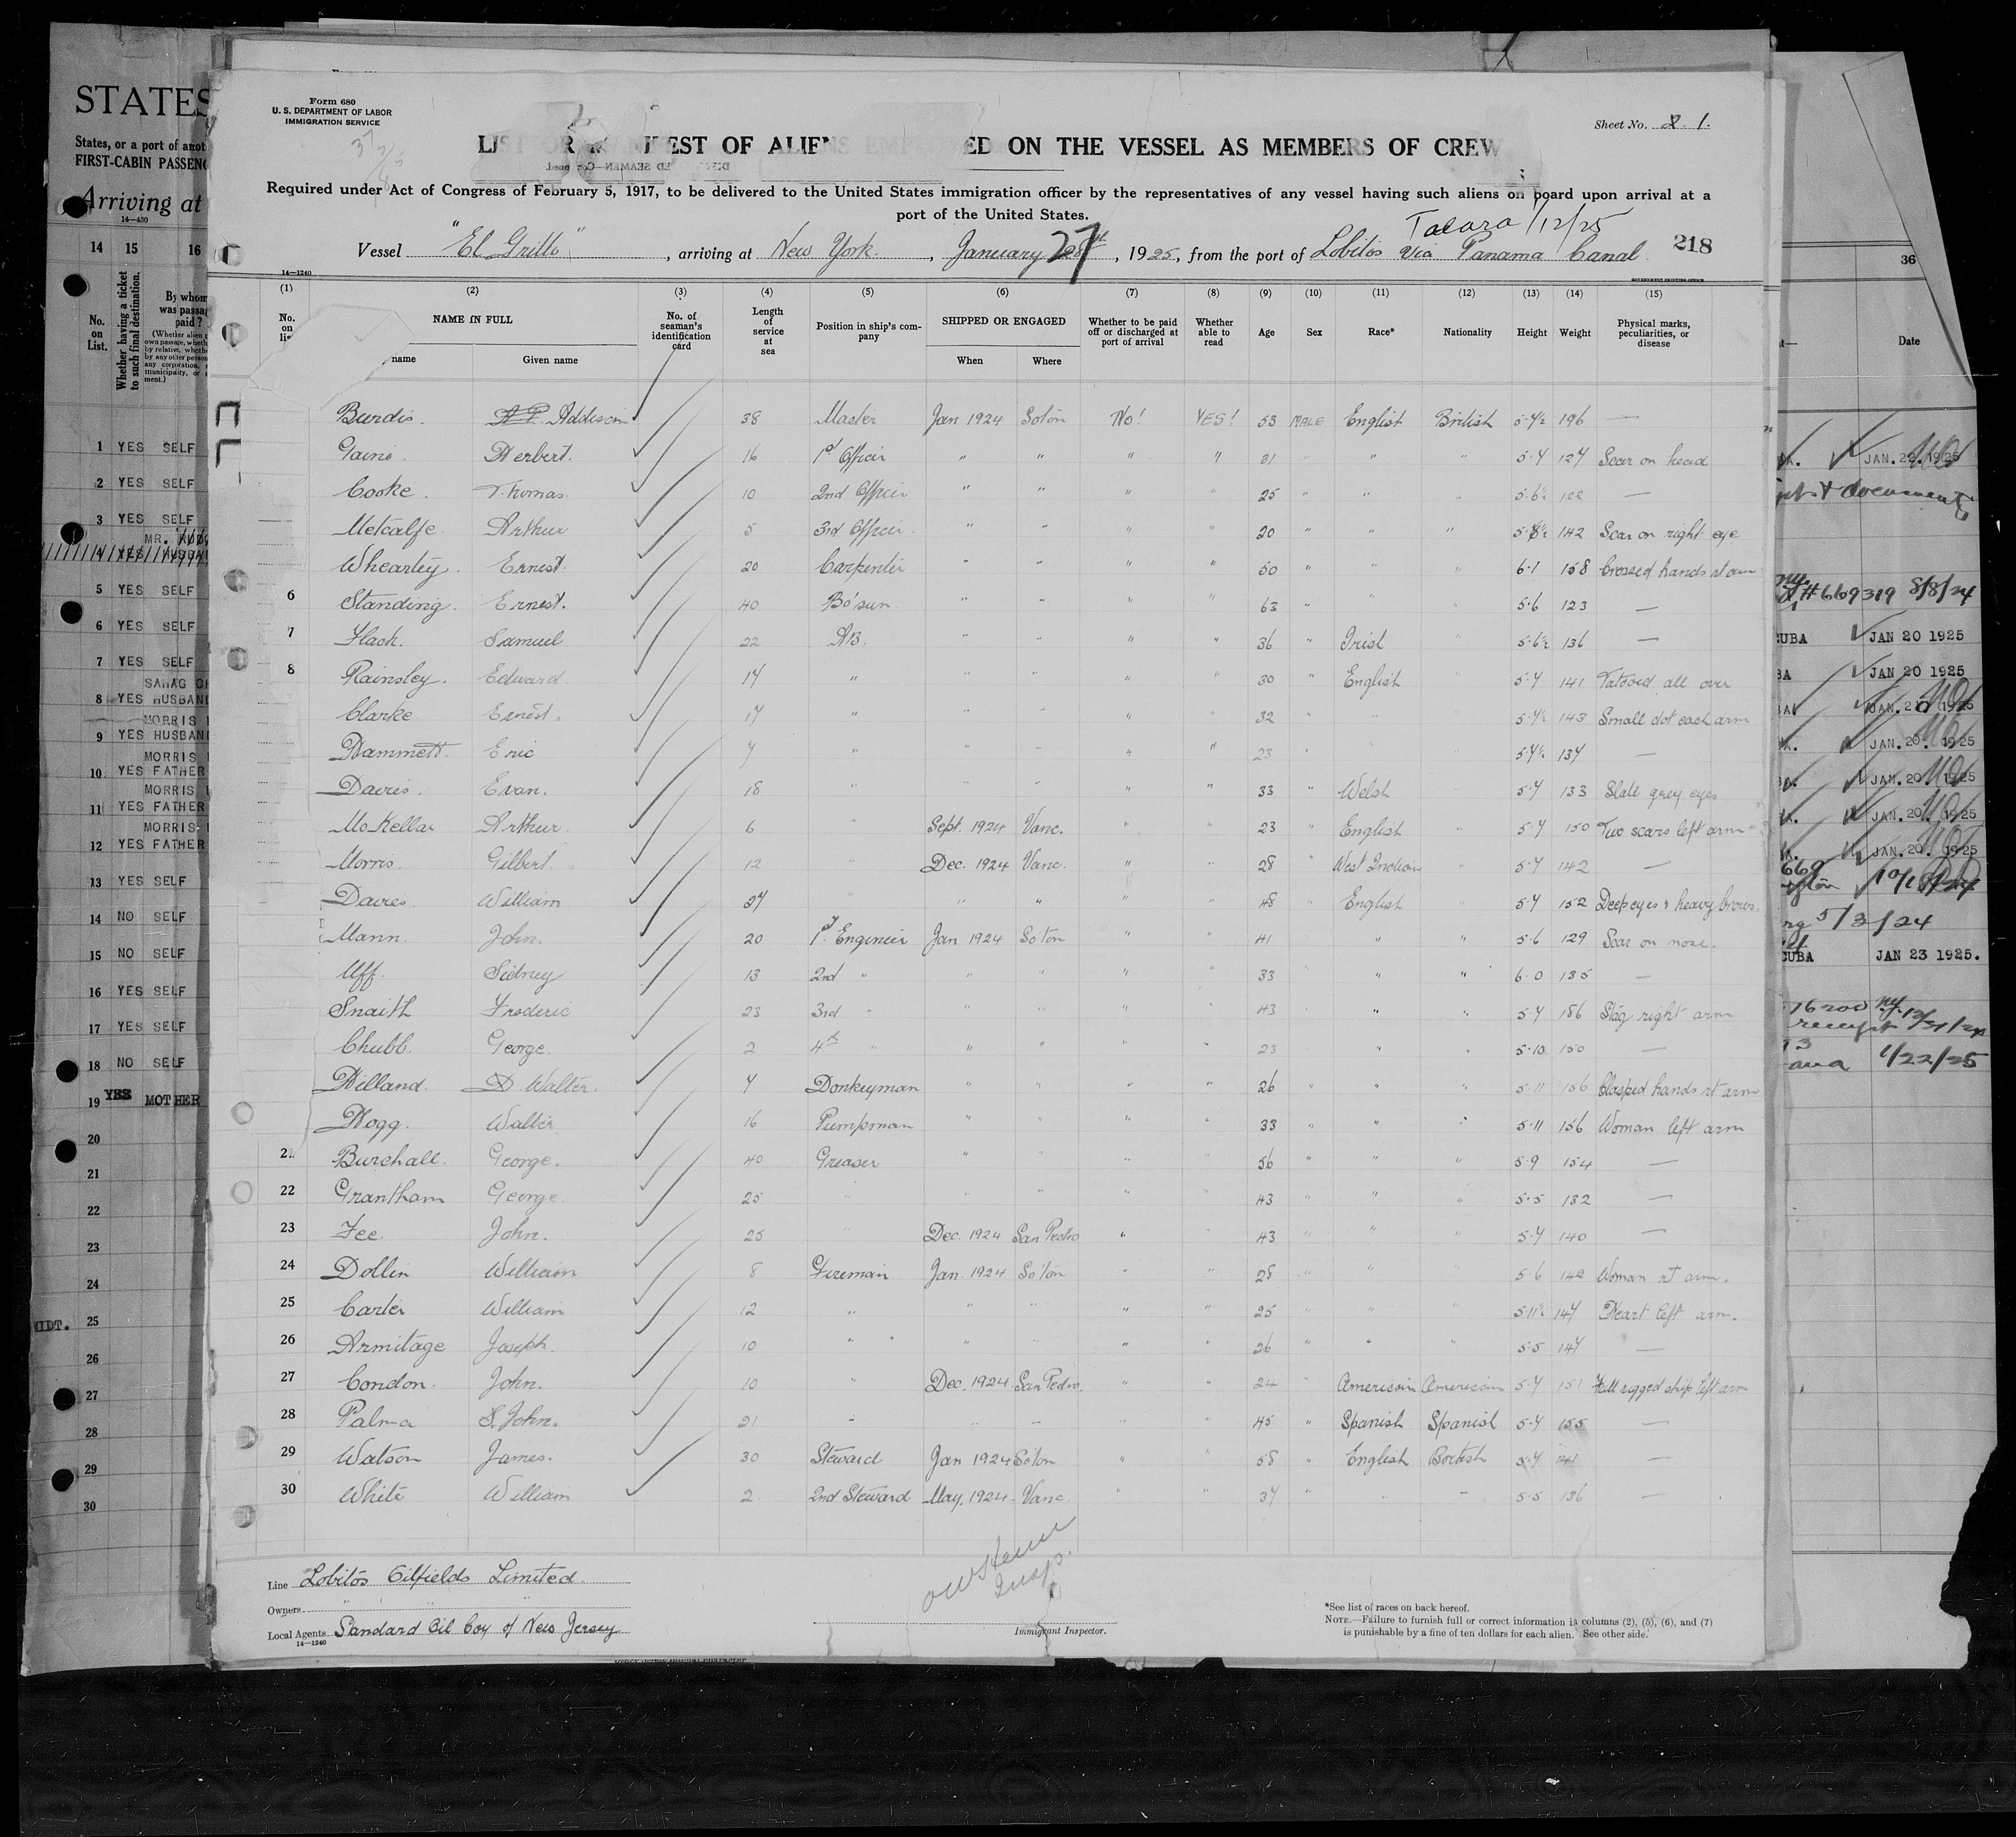 Form 680
U. S. DEPARTMENT OF LABOR
IMMIGRATION SERVICE
Sheet No. 1.
LIST OR MANIFEST OF ALIENS EMPLOYED ON THE VESSEL AS MEMBERS OF CREW
Required under Act of Congress of February 5, 1917, to be delivered to the United States immigration officer by the representatives of any vessel having such aliens on board upon arrival at a
port of the United States.
Talara 1/12/25
Vessel "El Grillo", arriving at New York, January 27, 1925, from the port of Lobitos via Panama Canal 218
14—1240
(1) (2) (3) (4) (5) (6) (7) (8) (9) (10) (11) (12) (13) (14) (15)
No. on NAME IN FULL No. of seaman's identification card Length of service at sea Position in ship's company SHIPPED OR ENGAGED Whether to be paid off or discharged at port of arrival Whether able to read Age Sex Race* Nationality Height Weight Physical marks, peculiarities, or disease
name Given name When Where
Burdis. A P Addison 38 Master Jan 1924 Soton No! YES! 53 MALE English British 5-4½ 196 —
Herbert. 16 1st Officer " " " " 31 " " 5-4 124 Scar on head
Cooke. Thomas. 10 2nd Officer " " " " 25 " " " 5-6½ 122 —
Metcalfe Arthur 5 3rd Officer " " " " 20 " " " 142 Scar on right eye
Whearley. Ernest. 20 Carpenter " " " " 50 " " " 6-1 158 Crossed hands rt arm
6 Standing. Ernest. 40 Bo'sun. " " " " 63 " " " 5-6 123 —
7 Samuel 22 AB. " " " " 36 " Irish " 5-6½ 136 —
8 Rainsley. Edward. 14 " " " " " 30 " English " 5-4 141 Tatooed all over
Clarke Ernest. 14 " " " " " 32 " " " 5-4½ 143 Small dot each arm
Hammett Eric 4 " " " " " 23 " " " 5-4½ 134 —
Davies. Evan. 18 " " " " " 33 " Welsh " 5-4 133 Slate grey eyes
McKellar Arthur 6 " Sept. 1924 Vanc. " " 23 " English " 5-4 150 Two scars left arm
Morris. Gilbert 12 " Dec. 1924 Vanc. " " 28 " West Indian " 5-4 142 —
Davies William 24 " " " " " 48 " English " 5-4 152 Deep eyes & heavy brows.
Mann. John. 20 1st Engineer Jan 1924 Soton " " 41 " " " 5-6 129 Scar on nose.
Uff. Sidney 13 2nd " " " " " 33 " " " 6-0 135 —
Snaith Frederic 23 3rd " " " " " 43 " " " 5-4 186 right arm
Chubb. George. 2 4th " " " " " 23 " " " 5-10 150 —
Hilland Walter. 4 Donkeyman " " " " 26 " " " 5-11 156 Clasped hands rt arm
Hogg. Walter 16 Pumpman " " " " 33 " " " 5-11 156 Woman left arm
Burchall. George. 40 Greaser " " " " 56 " " " 5-9 154 —
22 Grantham George. 25 " " " " " 43 " " " 5-5 132 —
23 Fee John. 25 " Dec. 1924 San Pedro " " 43 " " " 5-4 140 —
24 Dollin William 8 Fireman Jan. 1924 So'ton " " 28 " " " 5-6 142 Woman rt arm.
25 Carter William 12 " " " " " 25 " " " 5-11½ 144 Heart left arm.
26 Armitage Joseph. 10 " " " " " 26 " " " 5-5 144 —
27 Condon. John. 10 " Dec. 1924. San Pedro. " " 24 " American American 5-4 151 Full rigged ship left arm
28 Palma S. John. 21 " " " " " 45 " Spanish Spanish 5-4 155 —
29 Watson James. 30 Steward Jan 1924 Soton " " 58 " English British 5-4 141 —
30 White William 2. 2nd Steward May. 1924. Vanc. " " 34 " " " 5-5 136 —
Line Lobitos Oilfields Limited.
Owners " " "
Local Agents Standard Oil Coy of New Jersey
14—1240
Insp.
Immigrant Inspector.
*See list of races on back hereof.
NOTE.—Failure to furnish full or correct information in columns (2), (5), (6), and (7)
is punishable by a fine of ten dollars for each alien. See other side.
STATES
States, or a port of anot
FIRST-CABIN PASSENG
Arriving at
14—430
14 15 16
No. on List. Whether having a ticket to such final destination. By whom was passage paid?
1 YES SELF
2 YES SELF
3 YES SELF
4 YES HUSBAN
5 YES SELF
6 YES SELF
7 YES SELF
8 YES HUSBAND
MORRIS
9 YES HUSBAN
MORRIS
10 YES FATHER
MORRIS
11 YES FATHER
MORRIS
12 YES FATHER
13 YES SELF
14 NO SELF
15 NO SELF
16 YES SELF
17 YES SELF
18 NO SELF
19 YES MOTHER
20
21
22
23
24
25
26
27
28
29
30
36
Date
JAN. 22. 1925
#669319 8/8/24
CUBA JAN 20 1925
JAN 20 1925
JAN. 20. 1925
JAN. 20. 1925
JAN. 20. 1925
JAN. 20. 1925
5/3/24
CUBA JAN 23 1925.
receipt
1/22/25